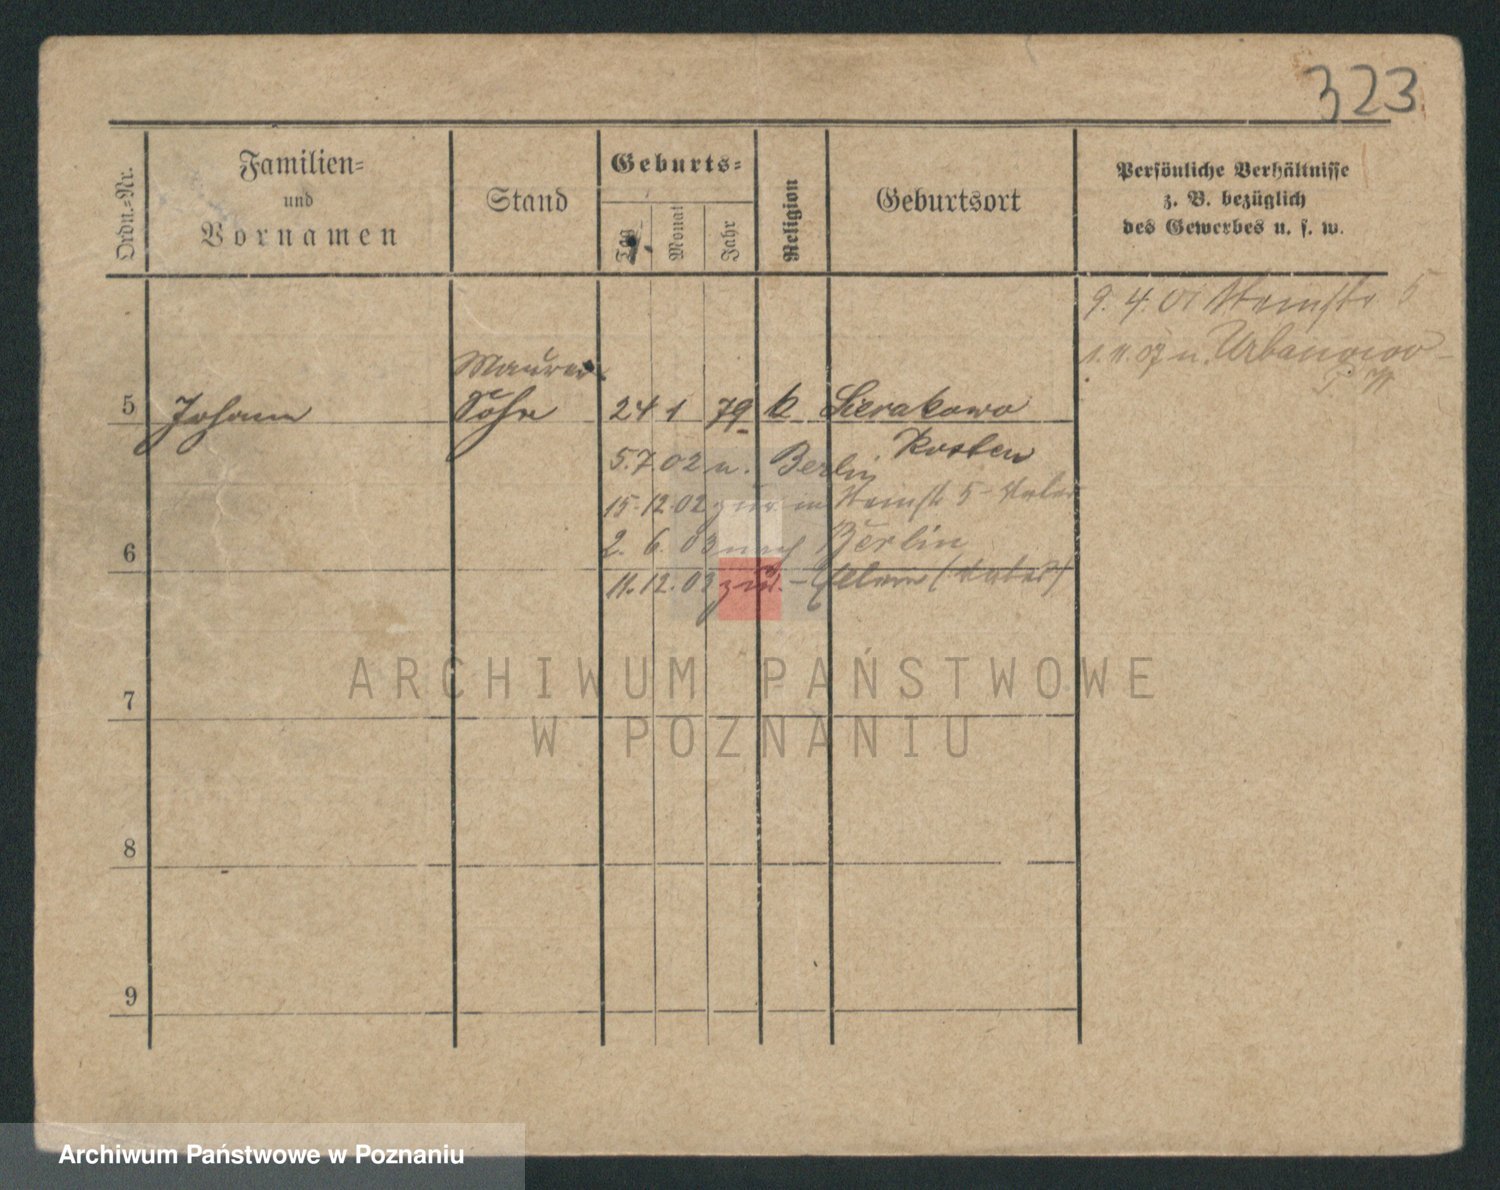 323
Ordn.-Nr.
Familien-
und
Vornamen
Stand
Geburts-
Tag
Monat
Jahr
Religion
Geburtsort
Persönliche Verhältnisse
z. B. bezüglich
des Gewerbes u. s. w.
9. 4. 01 5
1. 11. 07 n. Urbanowo
Maurer
5 Johann Sohn 24 1 79 k Sierakowo
Kosten
5. 7 02 n. Berlin
15. 12. 02 zur in 5
6 2. 6. 03 nach Berlin
11. 12. 03 zur. - Eltern (Vater)
ARCHIWUM PAŃSTWOWE
7
W POZNANIU
8
9
Archiwum Państwowe w Poznaniu